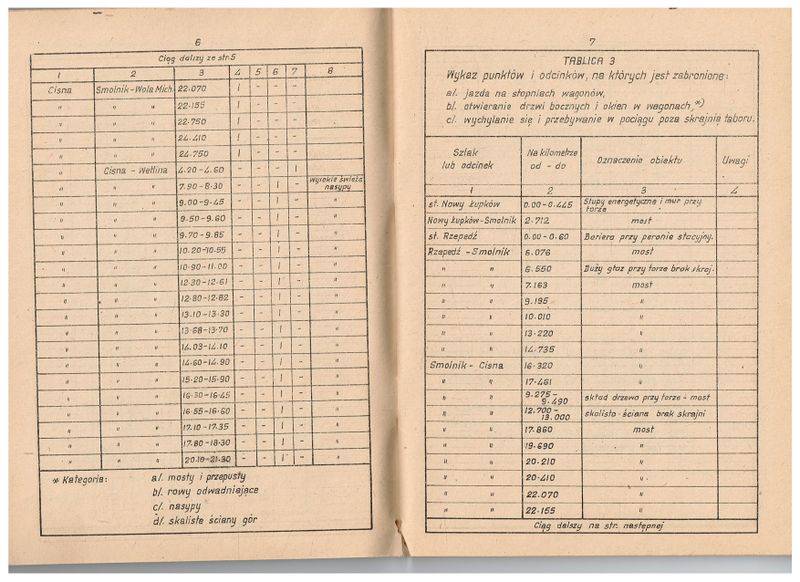 6
Ciąg dalszy ze str.5
1 2 3 4 5 6 7 8
Cisna Smolnik-Wola Mich. 22.070 1 - - -
" " " 22.155 1 - - -
" " " 22.750 1 - - -
" " " 24.410 1 - - -
" " " 24.750 1 - - -
" Cisna - Wetlina 4.20-4.60 - - - 1
" " " 7.90-8.30 - - 1 - Wysokie świeże nasypy
" " " 9.00-9.45 - - 1 - "
" " " 9.50-9.60 - - 1 - "
" " " 9.70-9.85 - - 1 - "
" " " 10.20-10.55 - - 1 - "
" " " 10.90-11.00 - - 1 - "
" " " 12.30-12.61 - - 1 - "
" " " 12.80-12.82 - - 1 - "
" " " 13.10-13.30 - - 1 - "
" " " 13.68-13.70 - - 1 - "
" " " 14.03-14.10 - - 1 - "
" " " 14.60-14.90 - - 1 - "
" " " 15.20-15.90 - - 1 - "
" " " 16.30-16.45 - - 1 - "
" " " 16.55-16.60 - - 1 - "
" " " 17.10-17.35 - - 1 - "
" " " 17.80-18.30 - - 1 - "
" " " 20.19-21.30 - - 1 - "
* Kategoria: a/. mosty i przepusty
b/. rowy odwadniające
c/. nasypy
d/. skaliste ściany gór
7
TABLICA 3
Wykaz punktów i odcinków, na których jest zabronione:
a/. jazda na stopniach wagonów,
b/. otwieranie drzwi bocznych i okien w wagonach, *)
c/. wychylanie się i przebywanie w pociągu poza skrajnią taboru.
Szlak lub odcinek Na kilometrze od - do Oznaczenie obiektu Uwagi
1 2 3 4
st. Nowy Łupków 0.00-0.445 Słupy energetyczne i mur przy torze
Nowy Łupków-Smolnik 2.712 most
st. Rzepedź 0.00-0.60 Bariera przy peronie stacyjnym.
Rzepedź - Smolnik 6.076 most
" " 6.550 Duży głaz przy torze brak skraj.
" " 7.163 most
" " 9.195 "
" " 10.010 "
" " 13.220 "
" " 14.735 "
Smolnik - Cisna 16.320 "
" " 17.461 "
" " 9.275-9.490 skład drzewa przy torze - most
" " 12.700-13.000 skalista-ściana brak skrajni
" " 17.860 most
" " 19.690 "
" " 20.210 "
" " 20.410 "
" " 22.070 "
" " 22.155 "
Ciąg dalszy na str. następnej